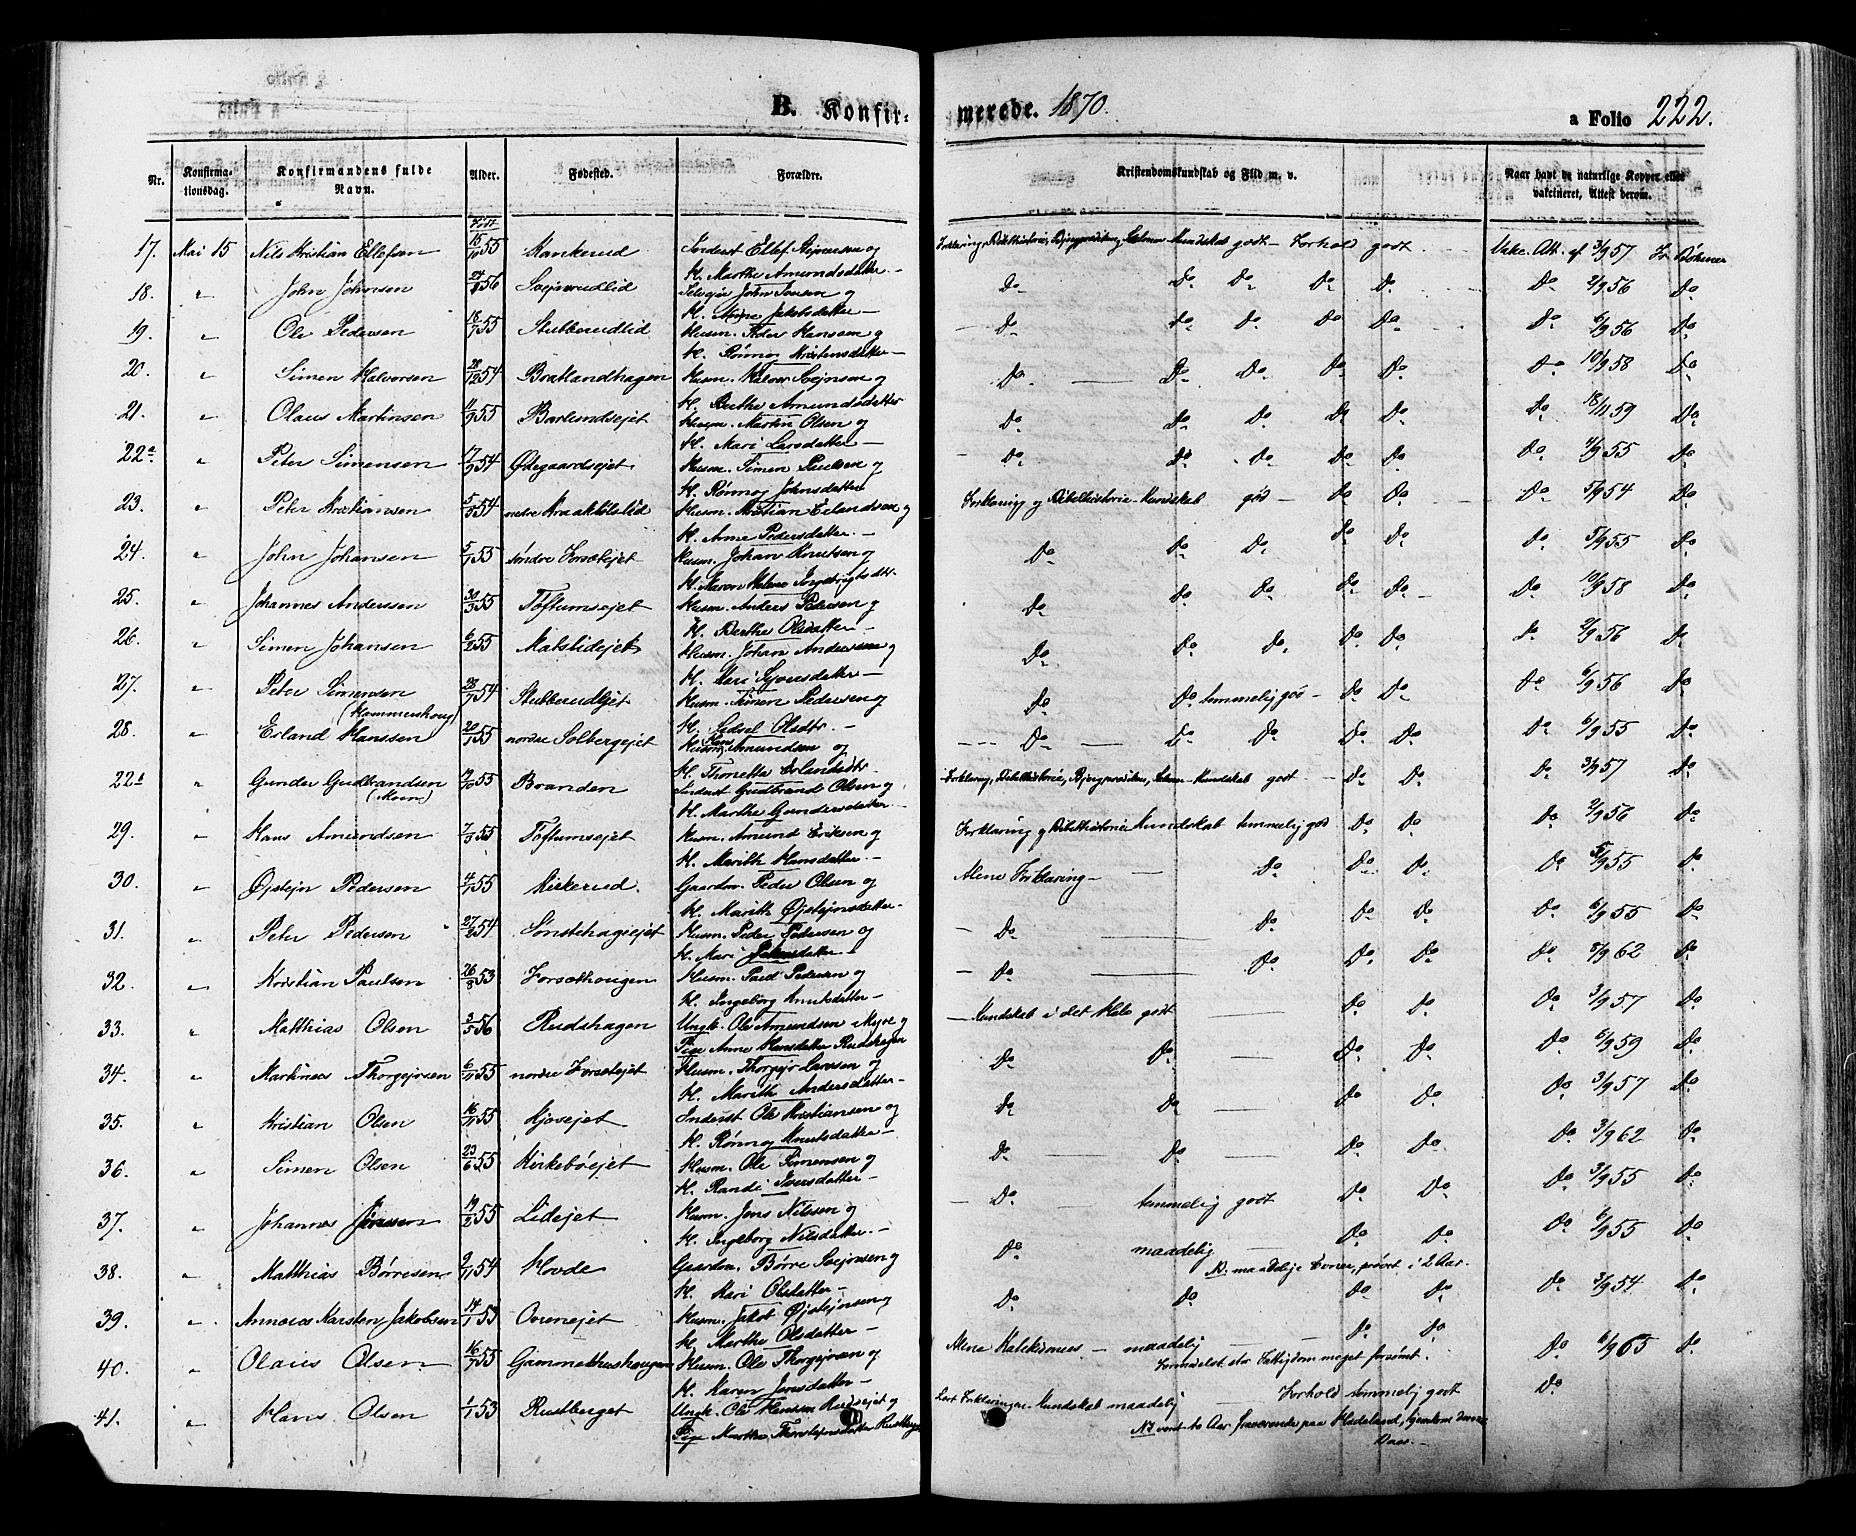 B. Konfirmerede. 1870. a Folio 222.
Nr. Konfirmationsdag. Konfirmandens fulde Navn. Alder. Fødested. Forældre. Kristendomskundskab og Flid m. v. Naar havt de naturlige Kopper eller vakcineret, Attest derom.
17. Mai 15 Nils Kristian Ellefsen 15/10 55 Inderst Ellef og Forklaring, Bibelhistorie, Kundskab godt - Forhold godt Vakc. Att. af 3/9 57
K. Marthe Amundsdatter -
18. " John Johnsen 24/4 56 Selvejer John og Do Do Do Do Do Do 2/9 56 Do
K. Jakobsdatter -
19. " Ole Pedersen 18/7 55 Stubberudlid Husm. Peder Hansen og Do Do Do Do Do Do 6/9 56 Do
K. Rønnog Kristensdatter -
20. " Simen Halvorsen 28/12 54 Bratlandhagen Husm. Halvor Svejnsen og Do Do Do Do Do Do 10/9 58 Do
K. Berthe Amundsdatter
21. " Olaus Martinsen 11/9 55 Barlundsejet Husm. Martin Olsen og Do Do Do Do Do Do 18/11 59 Do
K. Mari Larsdatter -
22a " Peter Simensen 17/9 54 Ødegaardsejet Husm. Simen Paulsen og Do Do Do Do Do Do 4/9 55 Do
K. Rønnog Johnsdatter
23. " Peter Kristiansen 5/5 54 nedre Husm. Kristian Erlandsen og Forklaring og Bibelhistorie - Kundskab god - Do Do Do 5/9 54 Do
K. Anne Pedersdatter -
24. " John Johansen 5/1 55 søndre Forsetejet Husm. Johan Knutsen og Do Do Do Do Do Do 5/9 55 Do
K. Karen Malene
25. " Johannes Andersen 30/3 55 Toftumsejet Husm. Anders Pedersen og Do Do Do Do Do Do 10/9 58 Do
K. Berthe Olsdatter -
26. " Simen Johansen 6/2 55 Matslidejet Husm. Johan Andersen og Do Do Do Do Do Do 2/9 56 Do
K. Mari Syversdatter -
27. " Peter Simensen 28/7 54 Stubberudejet Husm. Simen Pedersen og Do Do temmelig god - Do Do Do 6/9 56 Do
(Kammershoug) K. Sidsel Olsdtr. -
28. " Erland Hanssen 20/1 55 nordre Solbergejet Husm. Hans Amundsen og Do Do Do Do Do Do 6/9 55 Do
K. Thonette Erlandsdtr.
22b " Gunder Gudbrandsen 7/10 55 Branden Inderst Gudbrand Olsen og Forklaring, Bibelhistorie, Kundskab godt - Do Do Do 3/9 57 Do
(Moen) K. Marthe Gundersdatter -
29. " Hans Amundsen 7/3 55 Toftumsejet Husm. Amund Eriksen og Forklaring og Bibelhistorie Kundskab temmelig god Do Do Do 2/9 56 Do
K. Marith Hansdatter -
30. " Øjstejn Pedersen 4/1 55 Kirkerud. Gaardm. Peder Olsen og Alene Forklaring - Do Do Do Do 5/9 55 Do
K. Marith Øjstejnsdatter -
31. " Peter Pedersen 27/2 54 Sønstehagejet Husm. Peder Pedersen og Do Do Do Do Do 6/9 55 Do
K. Mari
32. " Kristian Paulsen 26/3 53 Forsethougen Husm. Paul Pedersen og Do Do Do Do Do 5/9 62 Do
K. Ingeborg Knutsdatter -
33. " Matthias Olsen 3/5 56 Rudshagen Ungk. Ole Amundsen Myre og Kundskab i det Hele godt Do Do Do 3/9 57 Do
Pige Anne Hansdatter Rudshagen
34. " Martinus Thorgejrsen 6/11 55 nordre Forsetejet Husm. Thorgejr Larssen og Do Do Do Do Do 6/9 59 Do
K. Marith Andersdatter -
35. " Kristian Olsen 16/11 55 Kjosejet Inderst Ole Kristiansen og Do Do Do Do Do 3/9 57 Do
K. Rønnog Knutsdatter -
36. " Simen Olsen 23/6 55 Kirkebøejet Husm. Ole Simensen og Do Do Do Do Do 3/9 62 Do
K. Randi Iversdatter -
37. " Johannes Jenssen 19/2 55 Lidejet Husm. Jens Nilssen og Do temmelig godt Do Do Do 3/9 55 Do
K. Ingeborg Nilsdatter -
38. " Matthias Børresen 2/11 54 Hovde Gaardm. Børre Svejnsen og Do maadelig Do Do Do 6/9 55 Do
K. Kari Olsdatter - NB. maadelige Evner, prøvet i 2 Aar.
39. " Anneus Karsten Jakobsen 14/1 53 Ovrenejet Husm. Jakob Øjstejnsen og Do Do Do Do Do 3/9 54 Do
K. Marthe Olsdatter -
40. " Olaus Olsen 16/7 55 Gammelhushougen Husm. Ole Thorgejrsen og Alene Katekismus - maadelig Do Do Do 6/9 65 Do
K. Karen Jensdatter - Formedelst stor Fattigdom meget forsømt.
41. " Hans Olsen 1/1 53 Rustberget Ungk. Ole Hanssen Rudsejet og Læst Forklaringen. Kundskab maadelig Forhold temmelig godt Do
Pige Marthe Thorstejnsdatter Rustberget NB været to Aar fraværende paa Hadeland, hjemkom denne
Vaar. -